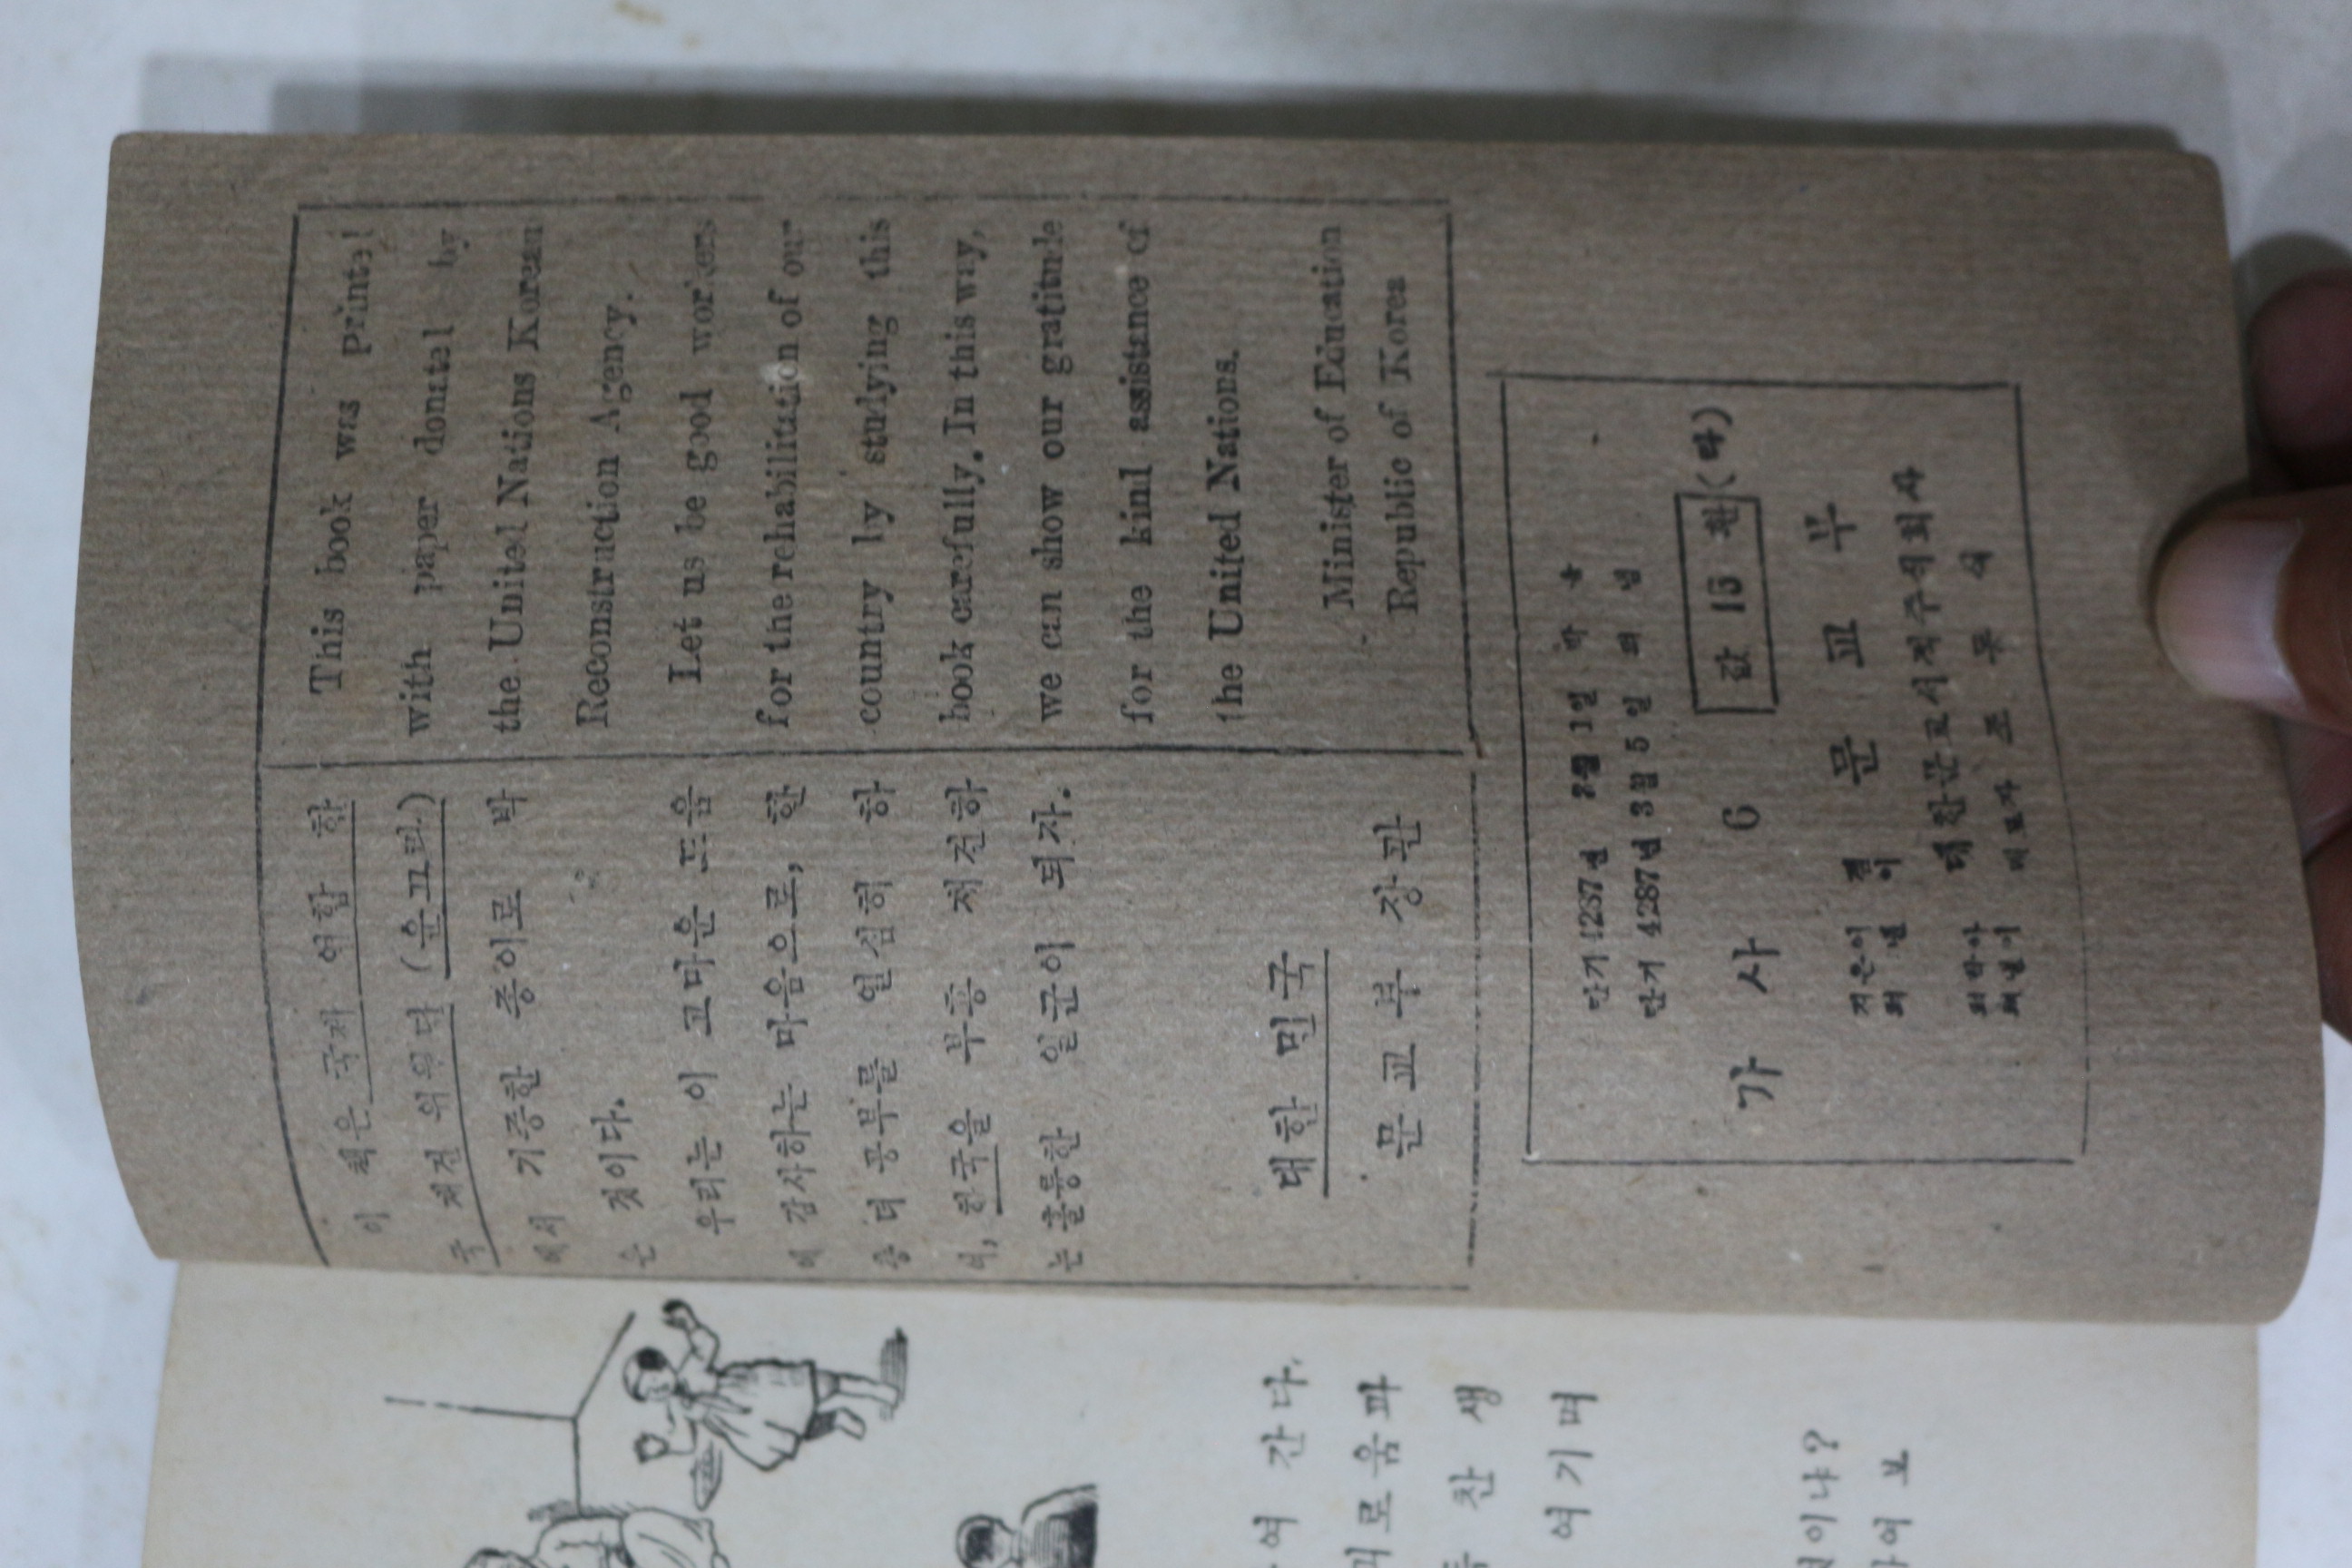 이 책은 국제 연합 한
국 재건 위원단 (운끄라)
에서 기증한 종이로 박
은 것이다.
우리는 이 고마운 도움
에 감사하는 마음으로, 한
층 더 공부를 열심히 하
여, 한국을 부흥 재건하
는 훌륭한 일군이 되자.
대한 민국
문교부 장관
This book was printed
with paper donated by
the United Nations Korean
Reconstraction Agency.
Let us be good workers
for the rehabilitution of our
country ly studying this
book carefully. In this way,
we can show our gratitude
for the kind assistance of
the United Nations.
Minister of Education
Republic of Korea
단기 4287년 3월 5일 펴냄
가사 6 값 15 환 (다)
지은이 겸 펴낸이 문교부
대한문교서적주식회사
간다.
찬 생
여기며